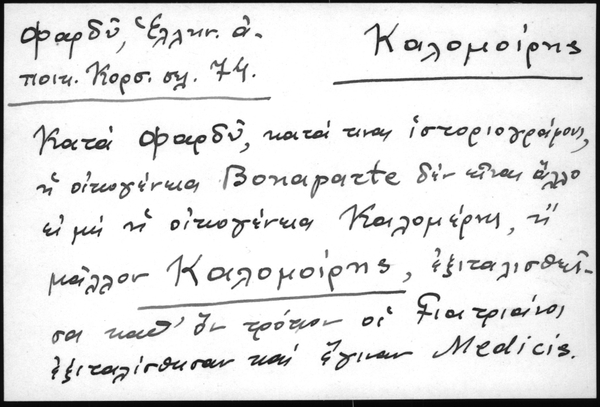 Φαρδῦ, Ἑλλην. ἀ-
ποικ. Κορσ. σελ. 74.
Καλομοίρης
Κατά Φαρδῦ, κατά τινας ἱστοριογράφους,
ἡ οἰκογένεια Bonaparte δέν εἶναι ἄλλο
εἰ μή ἡ οἰκογένεια Καλομέρης, ἤ
μᾶλλον Καλομοίρης, ἐξιταλισθεῖ-
σα καθ' ὅν τρόπον οἱ Γιατριάνοι
ἐξιταλίσθησαν καί ἔγιναν Medicis.